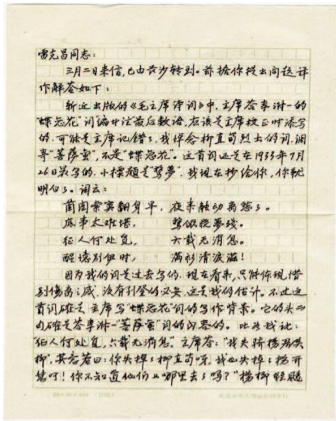 雷克昌同志：
三月二日来信，已由长沙转到。兹按你提出问题试
作解答如下：
新近出版的《毛主席诗词》中，主席答李淑一的
“蝶恋花”词编者注最后数语，应该是主席校正时添写
的，可能是主席记错了，我悼念柳直荀烈士的词，调
寄“菩萨蛮”，不是“蝶恋花”。这首词还是在1933年7月
26日夜写的，小标题是“惊梦”，我现在抄给你，你就
明白了。词云：
兰闺索寞翻身早，夜来触动离愁了。
底事太难堪，惊侬晓梦残。
征人何处觅，六载无消息。
醒忆别伊时，满衫清泪滋！
因为我的词是过去写的，现在看来，只能你说惜
别伤离之感，没有刊登的必要，这是我的估计。不过这
首词确是主席写“蝶恋花”词的写作背景。它的头二
句确是答李淑一“菩萨蛮”词的内容的。比如我说：
征人何处觅，六载无消息。”主席答：“我失骄杨君失
柳”，其意若曰：你失掉了柳直荀呀，我也失掉了杨开
慧呵！你不知道他们上哪里去了吗？“杨柳轻飏